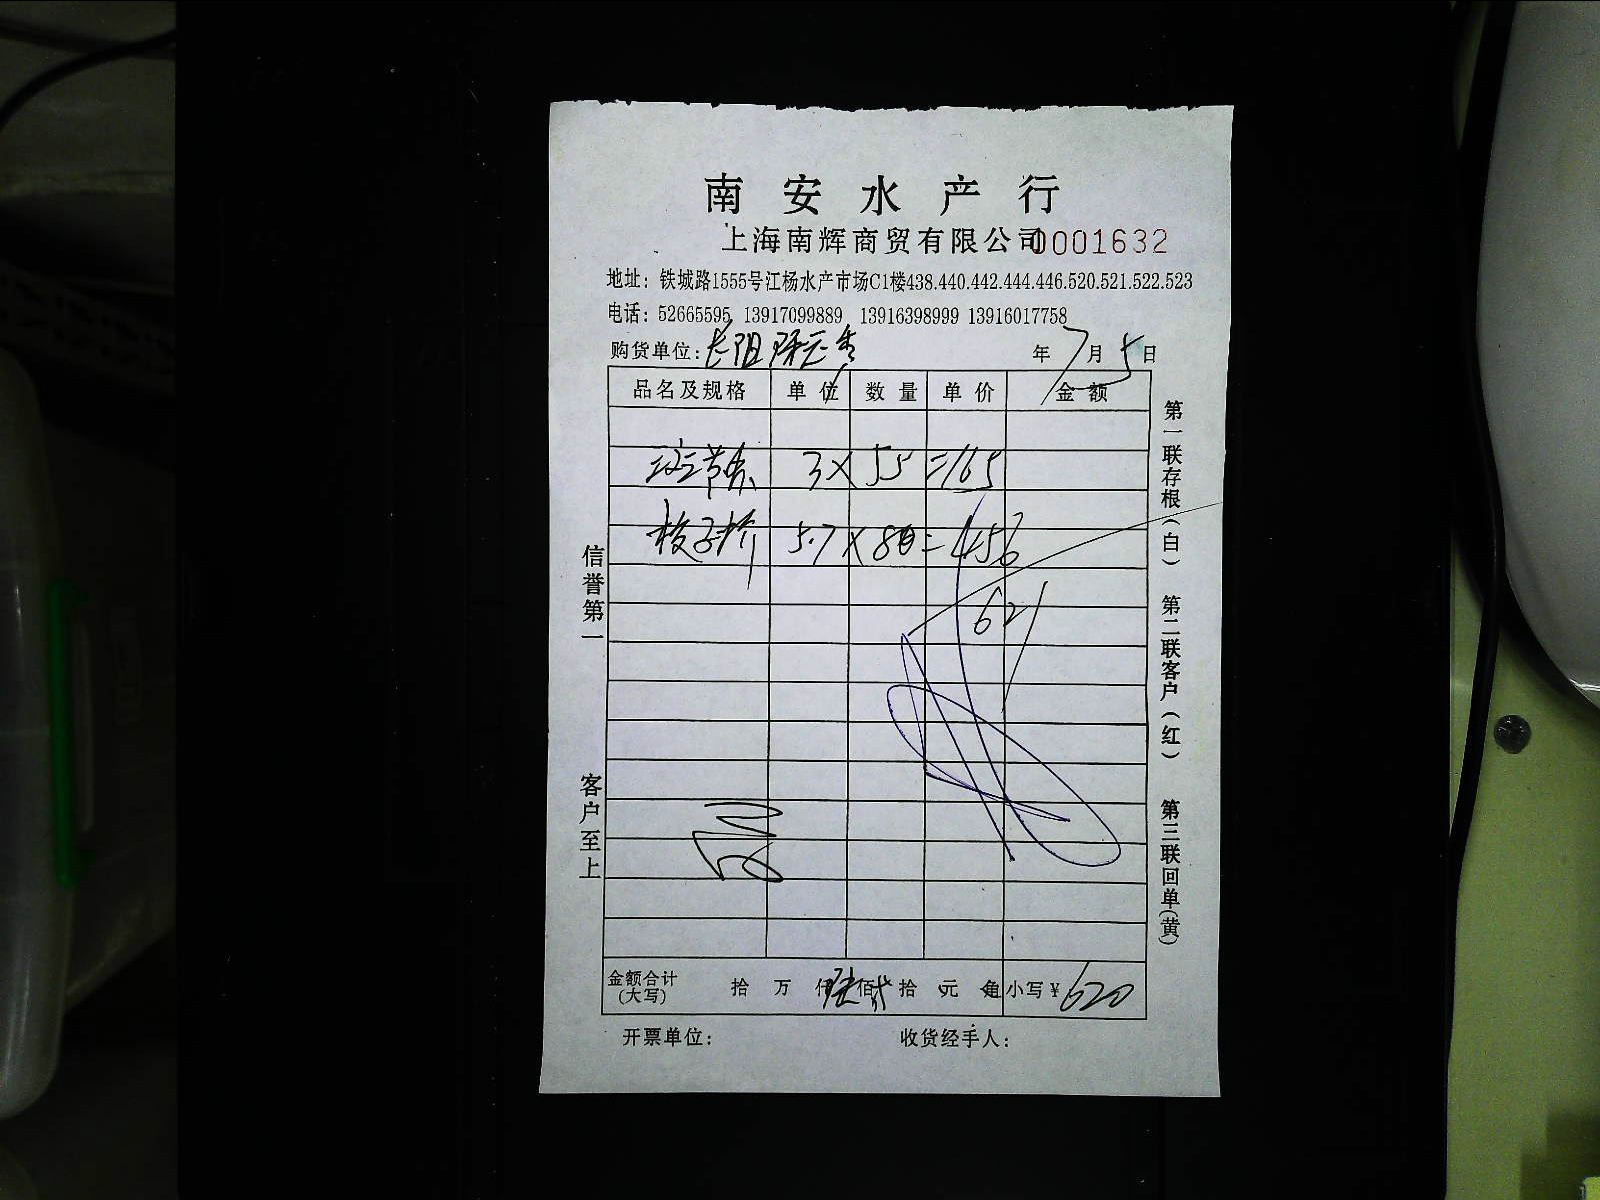 南安水产行
上海南辉商贸有限公司 0001632
地址：铁城路1555号江杨水产市场C1楼438.440.442.444.446.520.521.522.523
电话：52665595 13917099889 13916398999 13916017758
购货单位： 年 7月 5日
品名及规格 单位 数量 单价 金额
3 × 55 = 165
5.7 × 80 = 456
621
金额合计(大写) 拾 万 仟 陆佰 贰拾 元 角 小写￥620
开票单位： 收货经手人：
信誉第一
客户至上
第一联存根(白) 第二联客户(红) 第三联回单(黄)